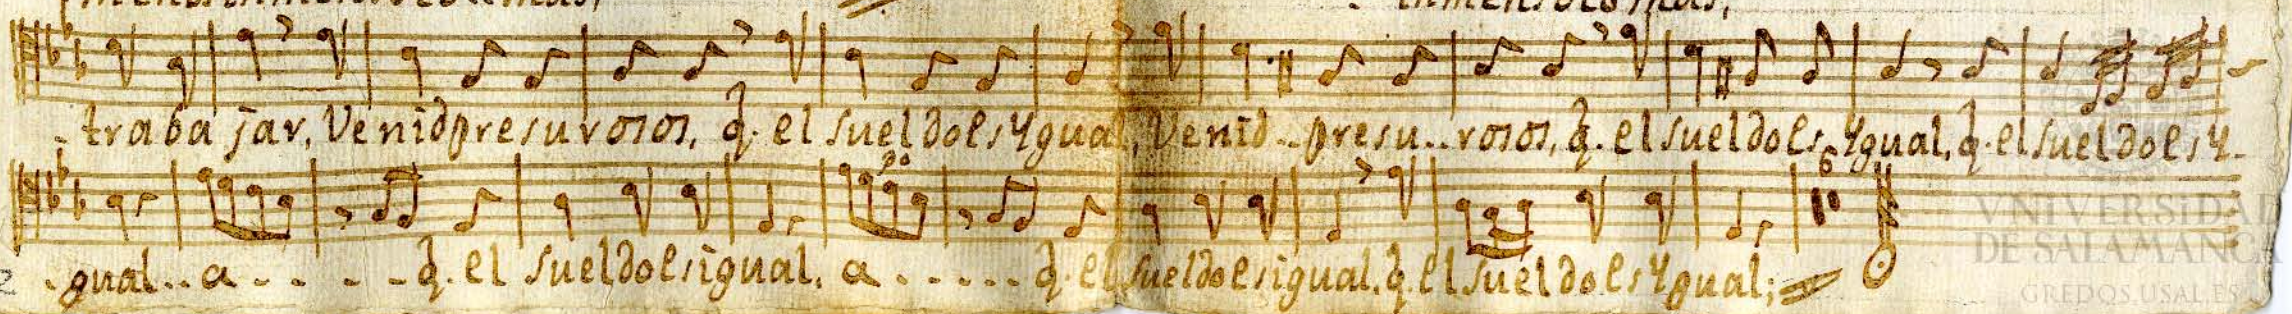 inmens
- traba jar, Venid presurosos, q. el sueldo es Ygual, Venid -- presu.. rosos, q. el sueldo es, Ygual, q. el sueldo es Y-
po 6
- gual.. a - - - - - q. el sueldo es igual, a . - . - . . q. el sueldo es igual. q. el sueldo es Ygual;
VNiVERSiDAD
DE SALAMANCA
GREDOS.USAL.ES